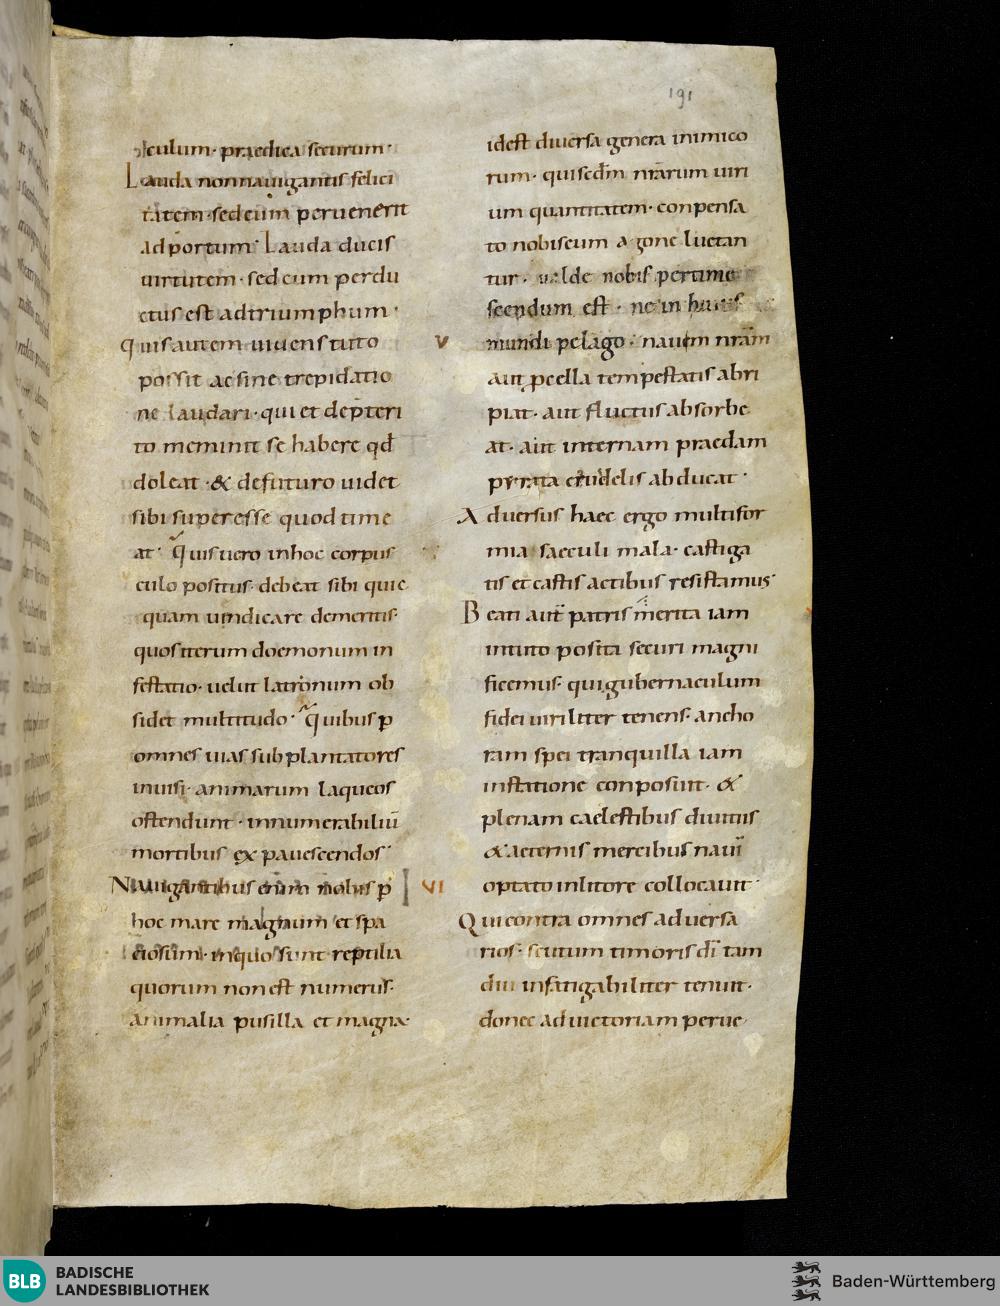 191
culum· praedica securum·
Lauda non nauigantis felici
tatem· sed cum peruenerit
ad portum· Lauda ducis
uirtutem· sed cum perdu
ctus est ad triumphum·
quis autem uiuens tuto
possit ac sine trepidatio
ne laudari· qui et de pteri
to meminit se habere qđ
doleat· & de futuro uidet
sibi superesse quod time
at· quis uero in hoc corpus
culo positus· debeat sibi quic
quam uindicare dementis·
quos iterum doemonum in
festatio· uelut latronum ob
sidet multitudo· Quibus ꝑ
omnes uias subplantatores
inuisi· animarum laqueos
ostendunt· innumerabiliū
mortibus expauescendos·
Nauigantibus enim nobis ꝑ
hoc mare magnum et spa
tiosum· in quo sunt reptilia
quorum non est numerus·
animalia pusilla et magna·
id est diuersa genera inimico
rum· qui scđm nrārum uiri
um quantitatem· conpensa
to nobiscum agone luctan
tur· ualde nobis pertime
scendum est· ne in huius
V mundi pelago· nauem nrām
aut pcella tempestatis abri
piat· aut fluctus absorbe
at· aut internam praedam
pirata crudelis abducat·
Aduersus haec ergo multifor
mia saeculi mala· castiga
tis et castis actibus resistamus·
Beati aut patris merita iam
in tuto posita securi magni
ficemus· qui gubernaculum
fidei uiriliter tenens· ancho
ram spei tranquilla iam
in statione conposuit· &
plenam caelestibus diuitiis
& aeternis mercibus nauī
VI optato in litore collocauit·
Qui contra omnes aduersa
rios· scutum timoris dī tam
diu infatigabiliter tenuit·
donec ad uictoriam perue
BLB BADISCHE
LANDESBIBLIOTHEK
Baden-Württemberg